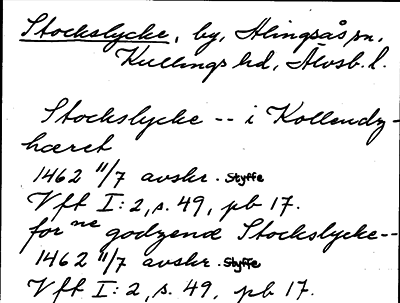 Stockslycke, by, Alingsås sn,
Kullings hd, Älvsb. l.
Stockslycke -- i Kollendz-
hæret
1462 11/7 avskr. Styffe
Vft I: 2, s. 49, pb 17.
for ne godzend Stockslycke--
1462 11/7 avskr. Styffe
Vft I: 2, s. 49, pb 17.